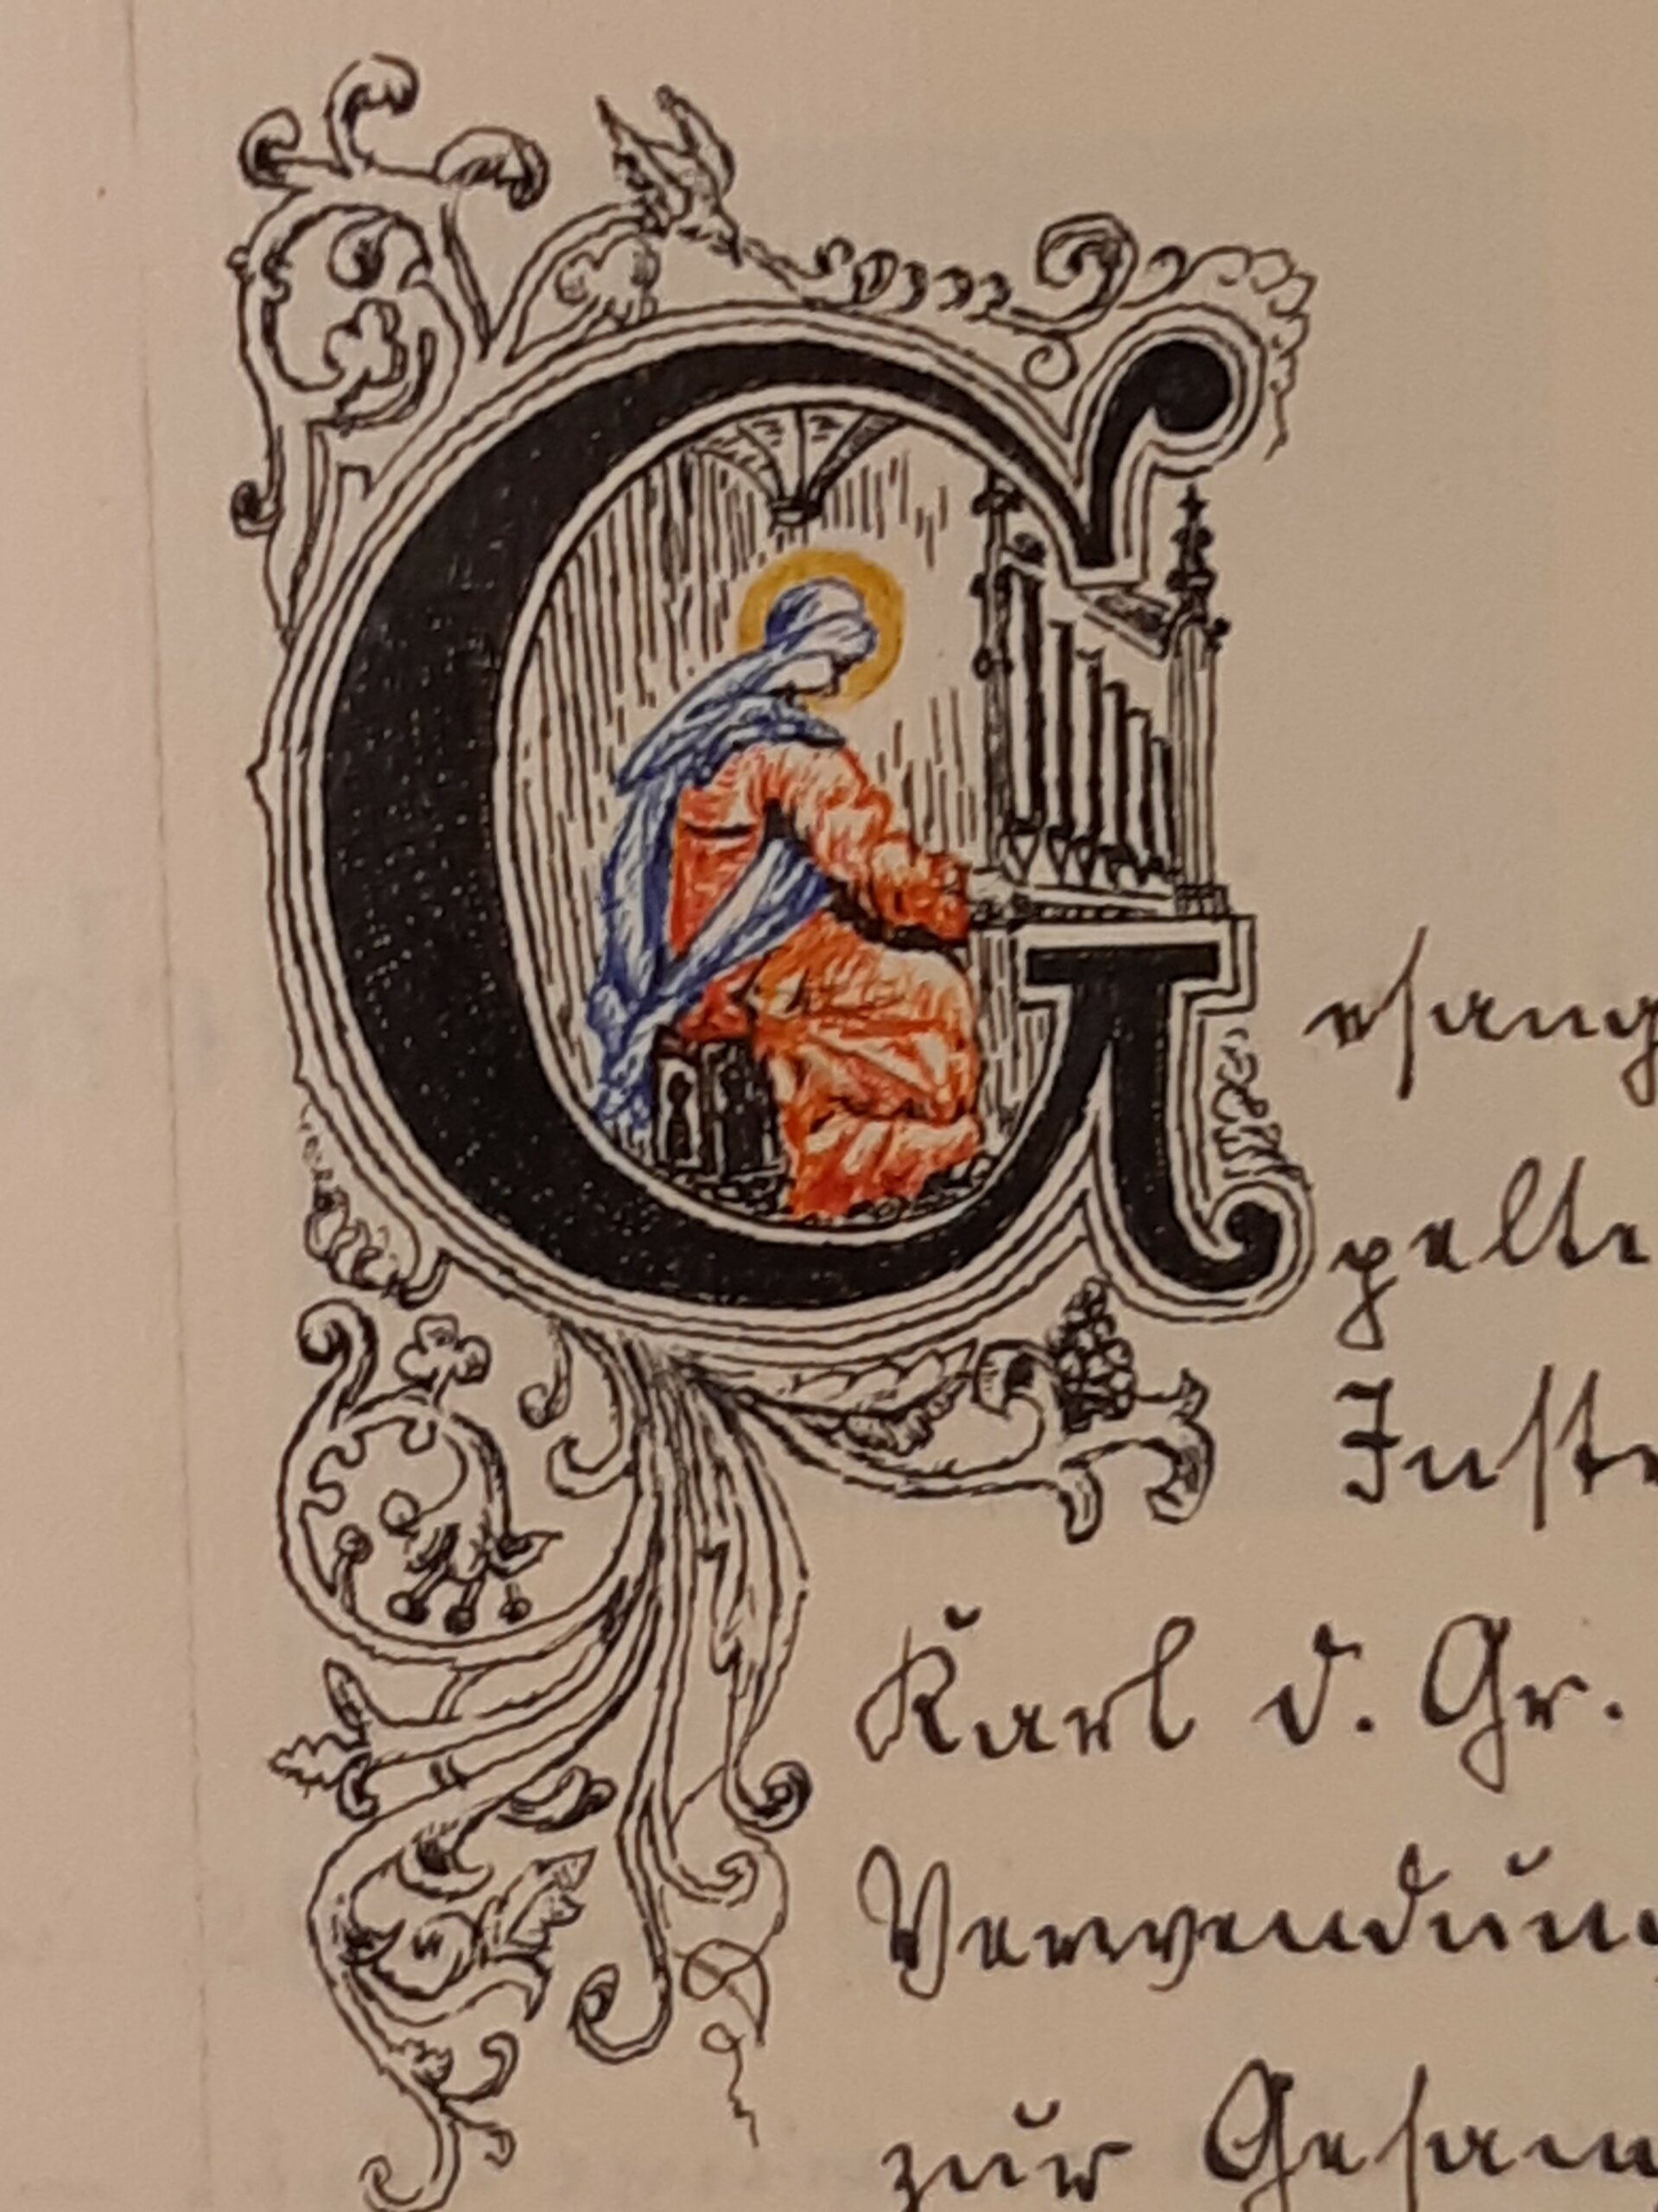 Gesang
gelte
Inste
Karl d. Gr.
Verwendung
zur Gesan